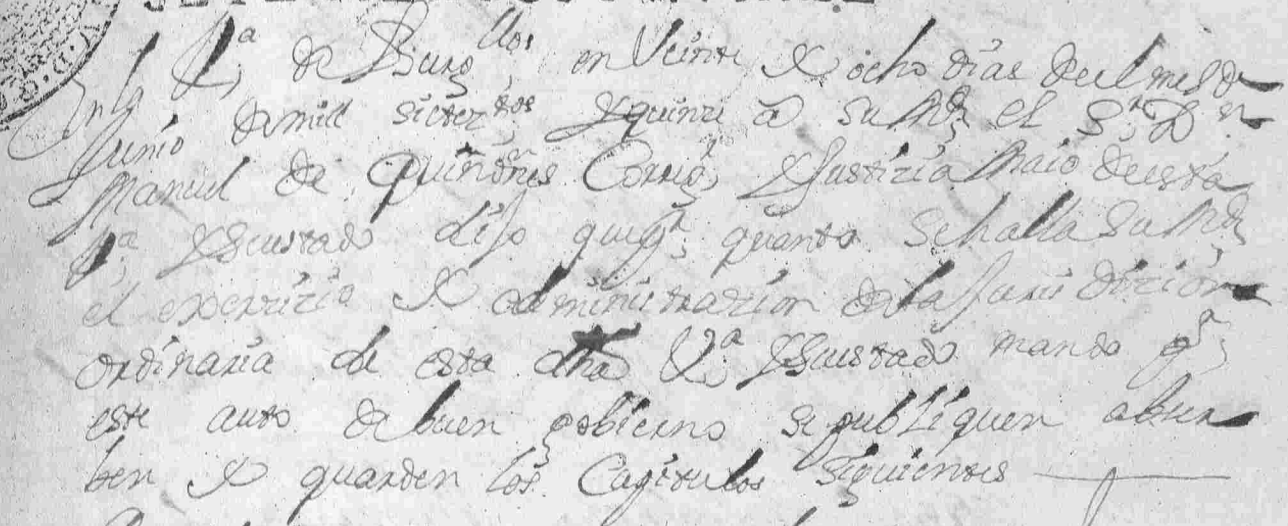 En la Vª de Burgˡˡᵒˢ en Veinte y ocho dias del mes de
Junio de mill setezᵗᵒˢ y quinze a su Mrd el Sʳ Dⁿ
Manuel de quiñones Correxᵒʳ y Justizia maior de esta
Vª y su estado dijo que pʳ quanto se halla su Mrd
el exerzizio y administrazion de la Jurisdizion
ordinaria de esta dha Vª y su estado mando qᵉ
este auto de buen gobierno se publiquen obser
ben y guarden los Capitulos siguientes